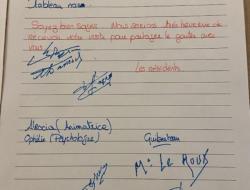 Soyez bien sages. Nous serions très heureux de
recevoir votre visite pour partager le goûter avec
vous.
Les résidents
Alexia (Animatrice)
Ophélie (Psychologue)
M. Le Roux